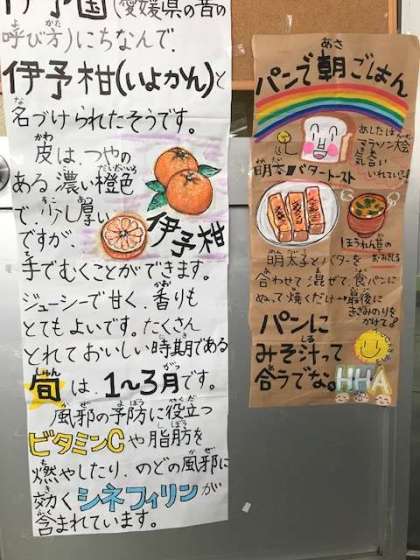 伊予国(愛媛県の昔の
呼び方)にちなんで、
伊予柑(いよかん)と
名づけられたそうです。
皮は、つやの
ある濃い橙色
で、少し厚い
ですが、
伊予柑
手でむくことができます。
ジューシーで甘く、香りも
とてもよいです。たくさん
とれておいしい時期である
旬は、1〜3月です。
風邪の予防に役立つ
ビタミンCや脂肪を
燃やしたり、のどの風邪に
効くシネフィリンが
含まれています。
パンで朝ごはん
あしたはん
マラソン大会
気合い
いれていこ!
明太バタートースト
ほうれん草の
おみそ汁
明太子とバターを
合わせて混ぜて、食パンに
ぬって焼くだけ→最後に
きざみのりを
かけて!
パンに
みそ汁って
合うでな。
HHA